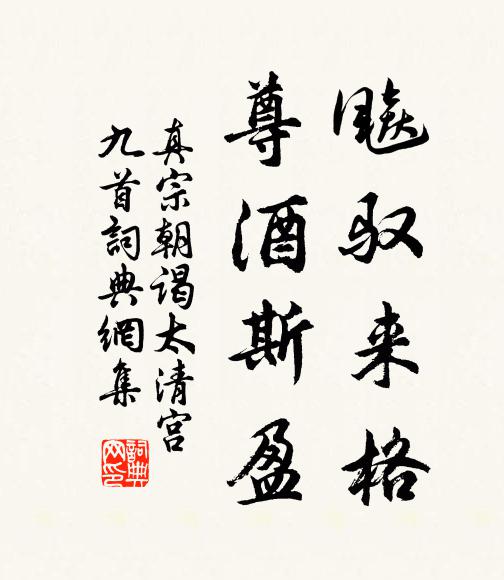 飇驭来格
尊酒斯盈
真宗朝谒太清宫
九首詞典網集
詞典网印